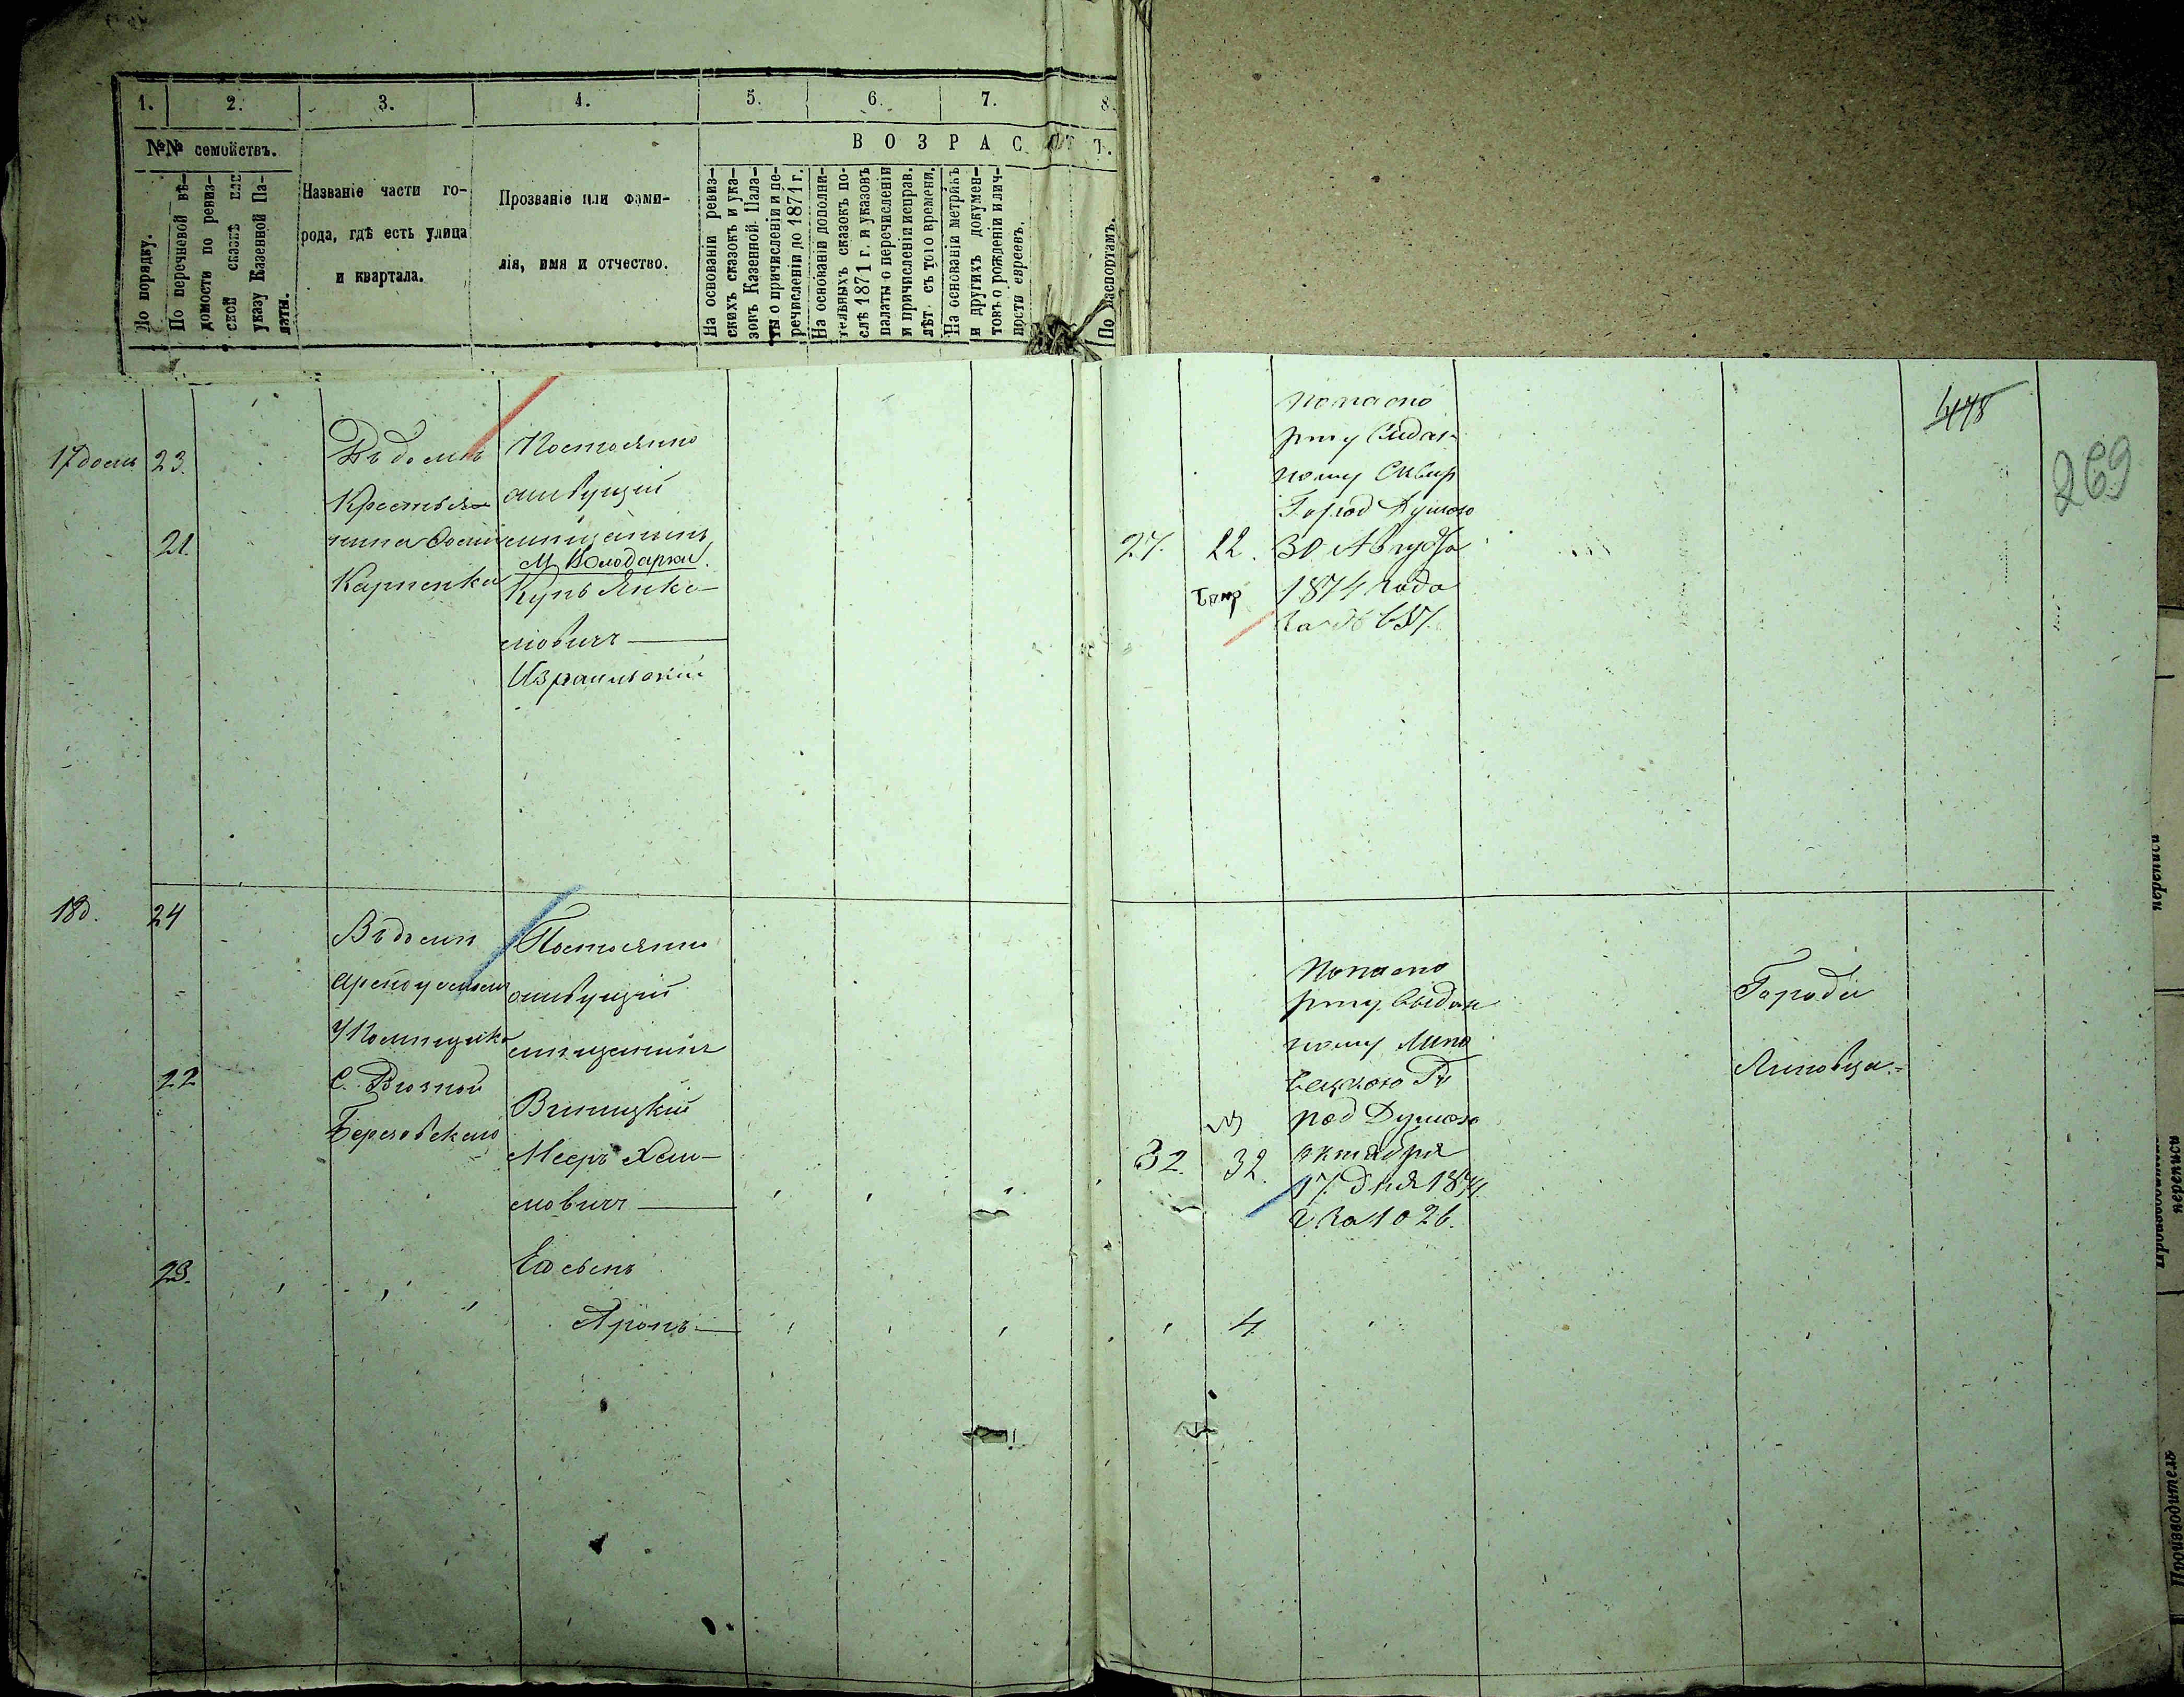 1. 2. 3. 4. 5. 6. 7. 8.
№№ семействъ.
В О З Р А С Т Ъ.
По порядку.
По перечневой вѣ-
домости по ревиз-
ской сказкѣ или
указу Казенной Па-
латы.
Названіе части го-
рода, гдѣ есть улица
и квартала.
Прозваніе или фами-
лія, имя и отчество.
На основаніи ревиз-
скихъ сказокъ и ука-
зовъ Казенной Пала-
ты о причисленіи и пе-
речисленіи до 1871 г.
На основаніи дополни-
тельныхъ сказокъ по-
слѣ 1871 г. и указовъ
палаты о перечисленіи
и причисленіи исправ.
лѣт. съ того времени.
На основаніи метрикъ
и другихъ докумен-
товъ о рожденіи и лич-
ности евреевъ.
По паспортамъ.
17 домъ
23.
21
Въ домѣ
Крестья-
нина
Карпенка
Постоянно
живущій
мѣщанинъ
М. Володарки
Купь Янке-
лювичъ
Израильскій
27.
22.
По паспо
рту выдан
ному Сквир
Город Думою
30 Августа
1874 года
За № 657.
448
269
18д.
24
22
23.
Въ домѣ
С.
Березовскаго
Постоянно
живущій
мѣщанинъ
Виницкій
Мееръ Хаи-
мовичъ
Его сынъ
Аронъ
32.
32.
4.
По паспо
рту выдан
ному Липо
вецкою Го
род Думою
октября
17 дня 1874
г. За 1026.
Города
Липовца
переписи
Производитель
переписи
Производитель